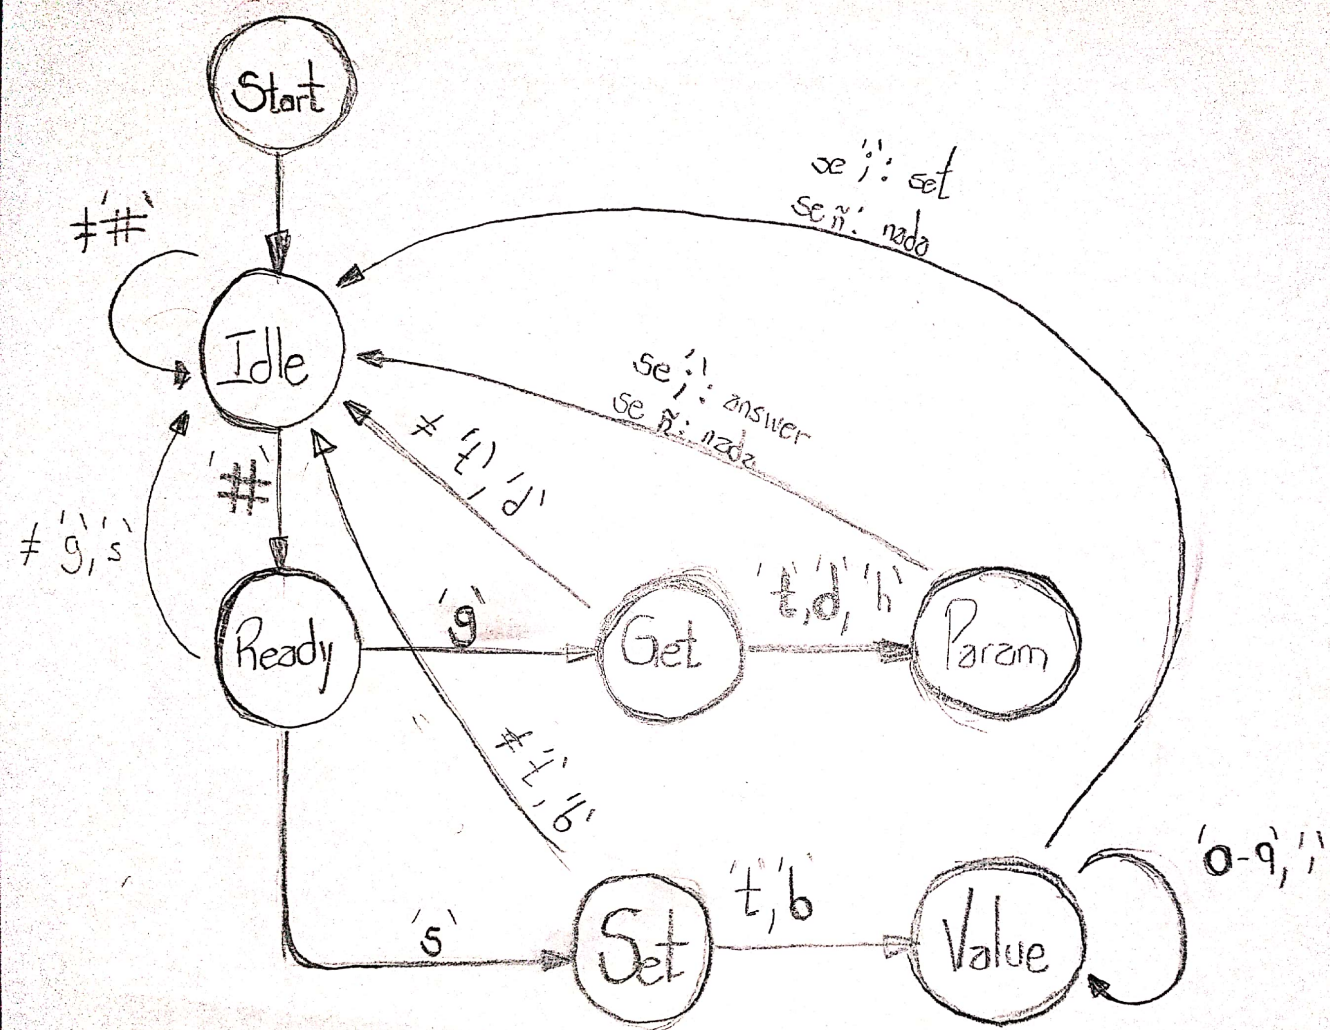 Start
se ';': set
se ñ: nada
≠'#'
Idle
se ';': answer
se ñ: nada
≠ 't', 'd'
'#'
≠ 'g', 's'
Ready
'g'
Get
't,d, 'h'
Param
≠ 't', 'b'
's'
Set
't, 'b
Value
'0-9, ','